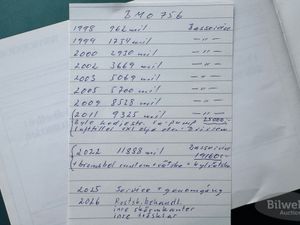 BMO 756
1998 962 mil Basservice
1999 1754 mil —"—
2000 2930 mil —"—
2002 3669 mil —"—
2003 5069 mil —"—
2005 5700 mil —"—
2009 8528 mil —"—
2011 9325 mil —"—
Byte 25000:-
Luftfilter olja
2022 11888 mil Basservice
19160:-
+ bromsbel + kylvätska
2025 Service + genomgång
2026 Rostsk. behandl.
inre skärmkanter
inre trösklar
Bilweb
Auctions